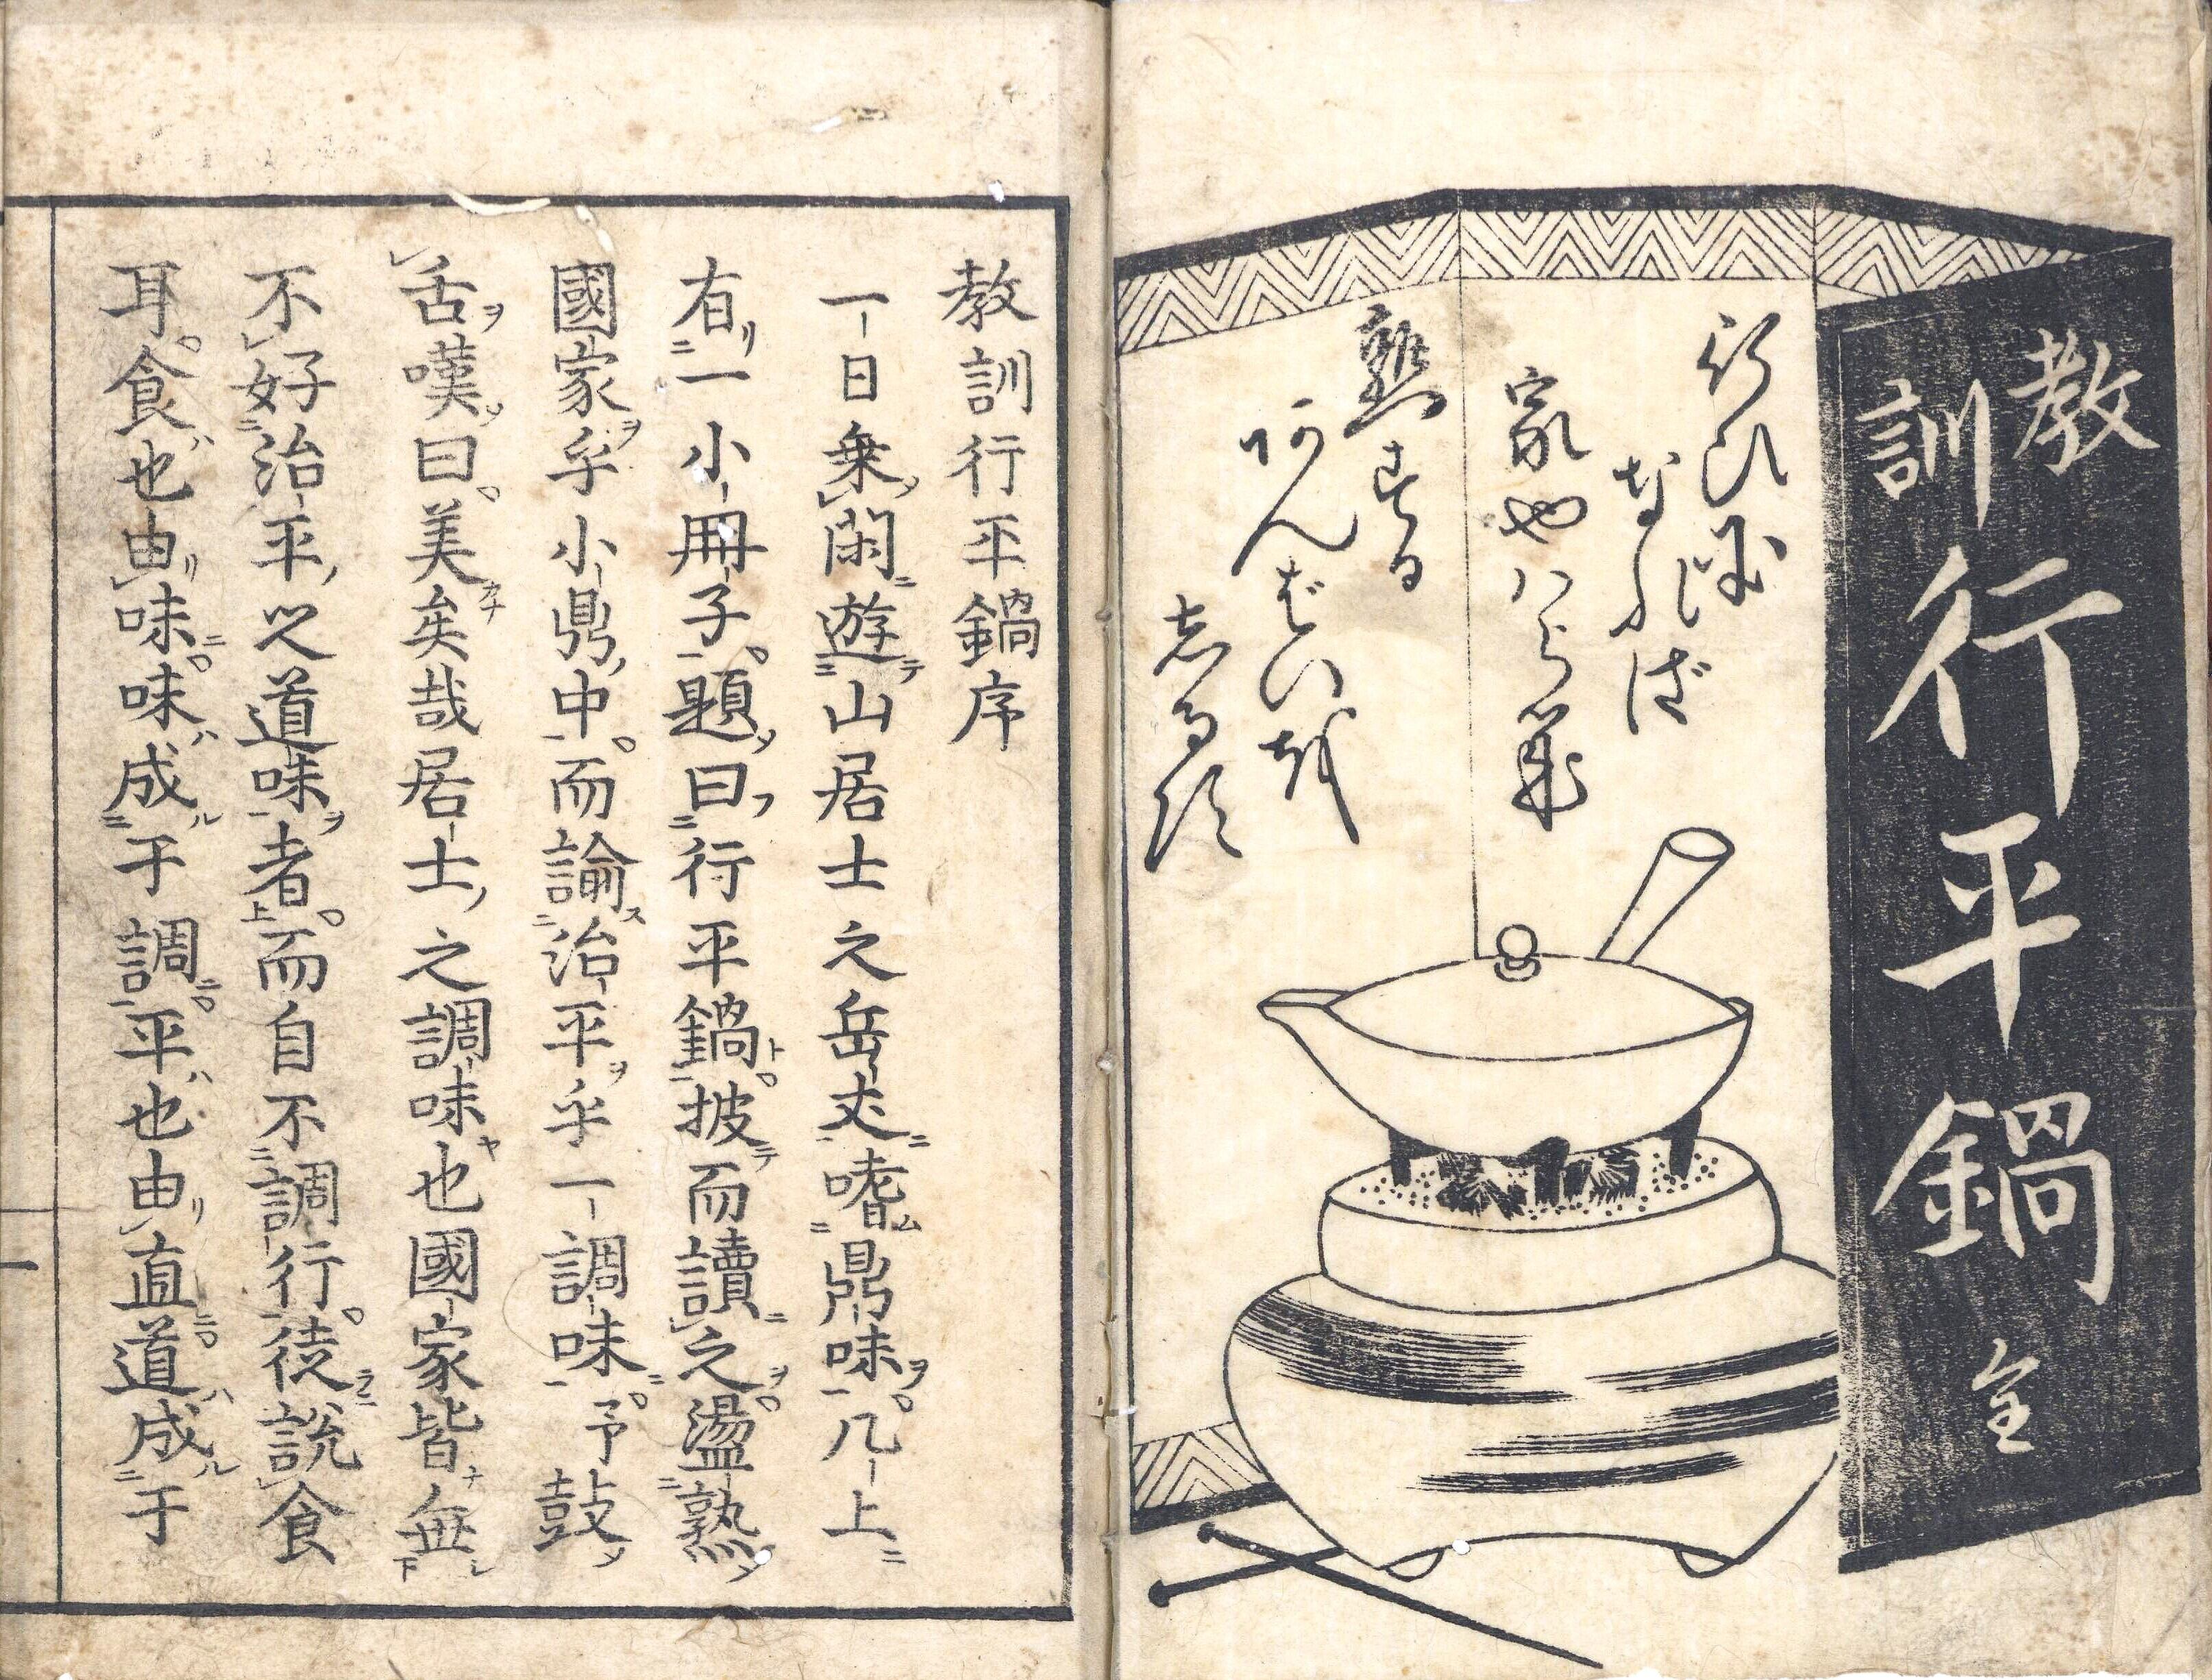 教訓
行平鍋
全
行ひ
家也ハら
熟する
阿んばい越
志る須
教訓行平鍋序
一日乗閑遊山居士之岳丈嗜鼎味几上
有一小冊子題曰行平鍋披而讀之盪熟
國家乎小鼎中而諭治平乎一調味予鼓
舌嘆曰美矣哉居士之調味也國家皆無
不好治平之道味者而自不調行徒説食
耳食也由味味成于調平也由直道成于
一